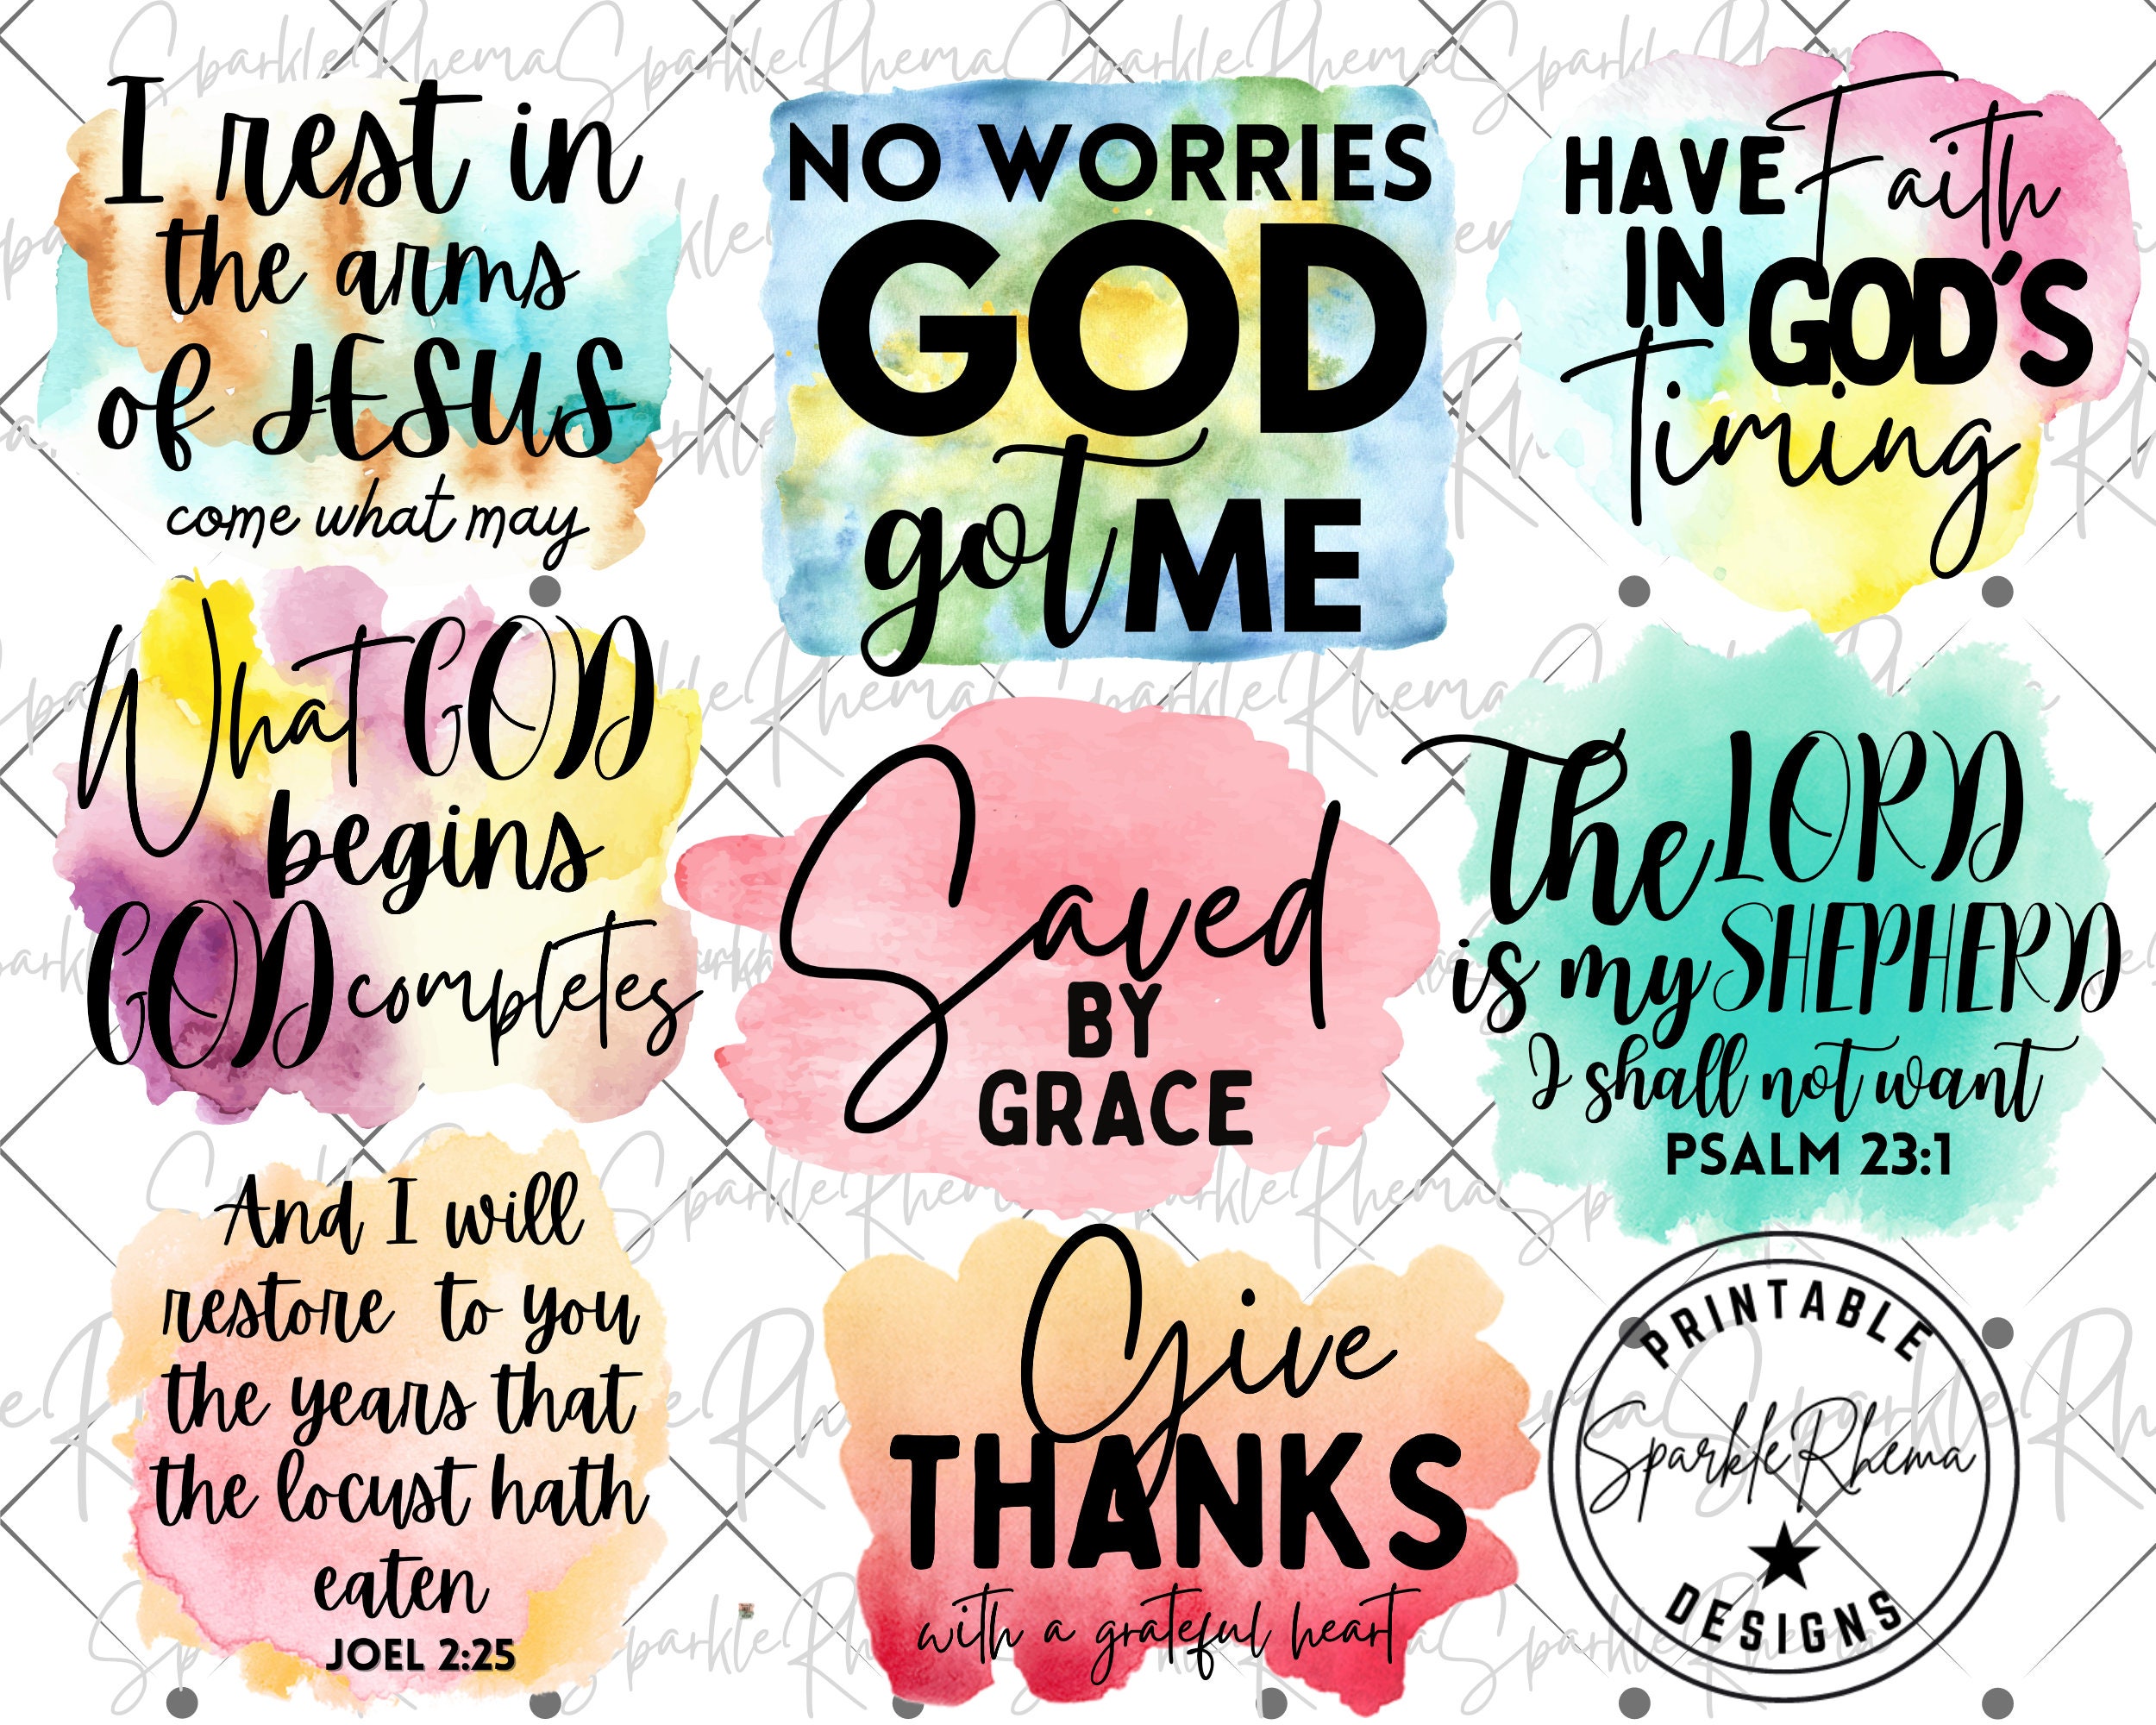 I rest in
the arms
of JESUS
come what may
NO WORRIES
GOD
got ME
HAVE Faith
IN GOD'S
Timing
What GOD
begins
GOD completes
Saved
BY
GRACE
The LORD
is my SHEPHERD
I shall not want
PSALM 23:1
And I will
restore to you
the years that
the locust hath
eaten
JOEL 2:25
Give
THANKS
with a grateful heart
PRINTABLE
SparkleRhema
DESIGNS